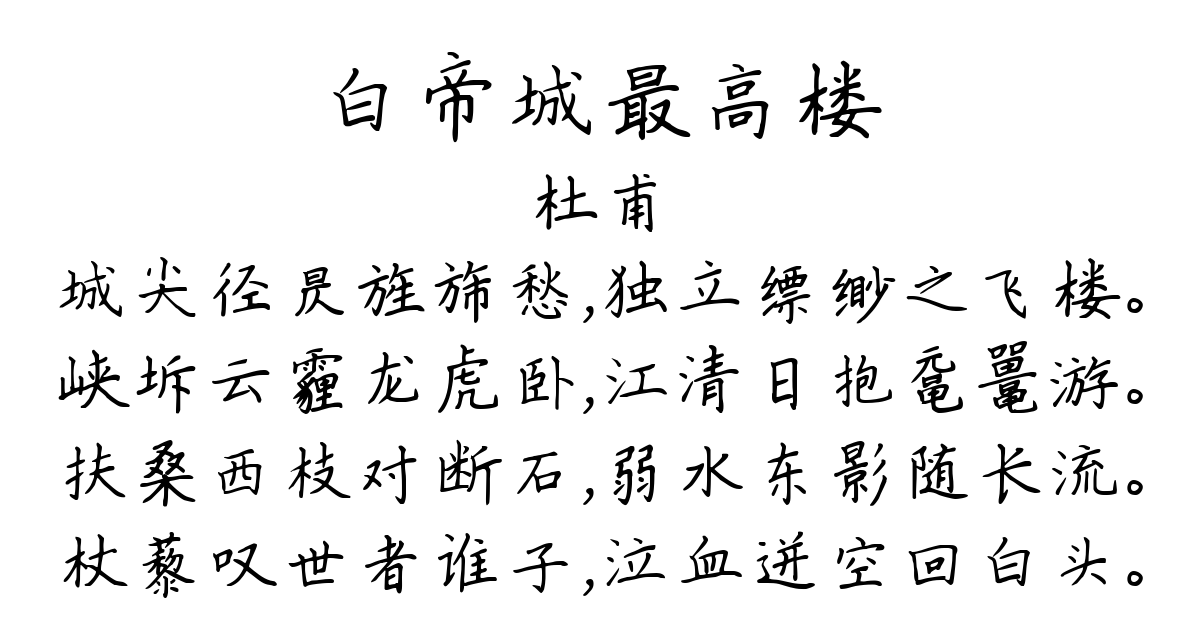 白帝城最高楼
杜甫
城尖径昃旌旆愁,独立缥缈之飞楼。
峡坼云霾龙虎卧,江清日抱鼋鼍游。
扶桑西枝对断石,弱水东影随长流。
杖藜叹世者谁子,泣血迸空回白头。